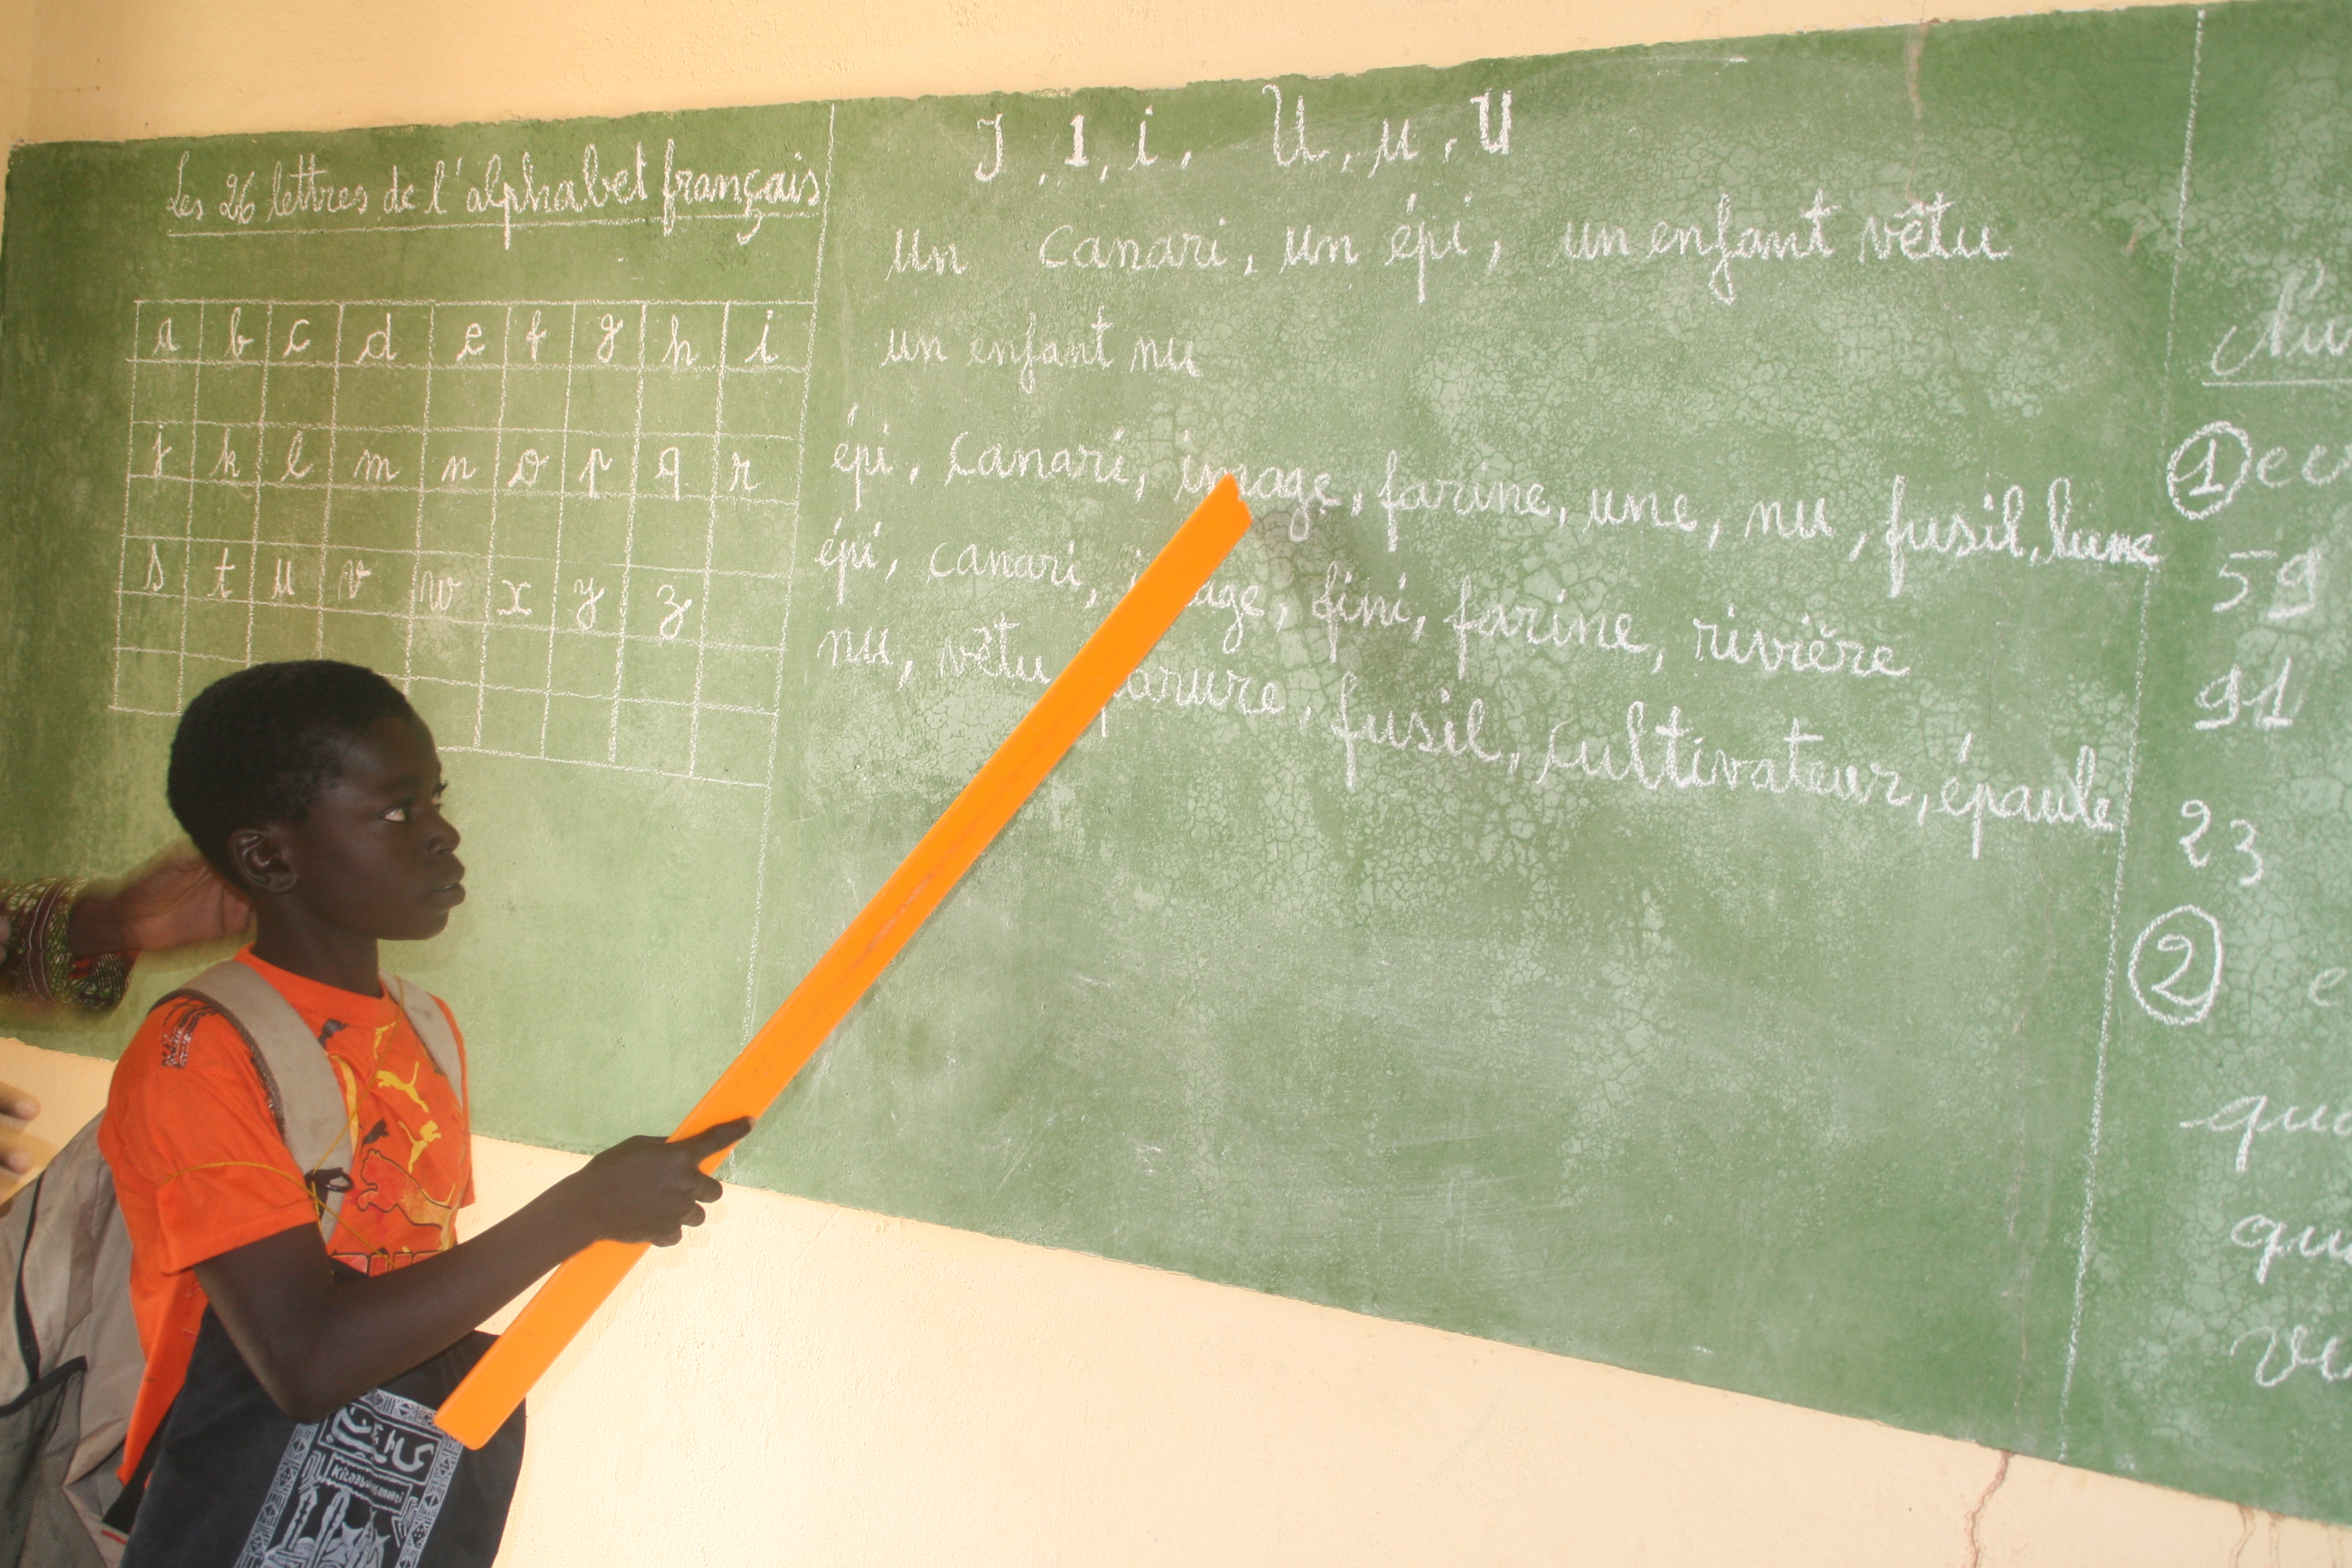 Les 26 lettres de l'alphabet français
a b c d e f g h i
j k l m n o p q r
s t u v w x y z
I, 1, i, U, u, U
un canari, un épi, un enfant vêtu
un enfant nu
épi, canari, image, farine, une, nu, fusil, lune
épi, canari, image, fini, farine, rivière
nu, vêtu, parure, fusil, cultivateur, épaule
1
59
91
23
2